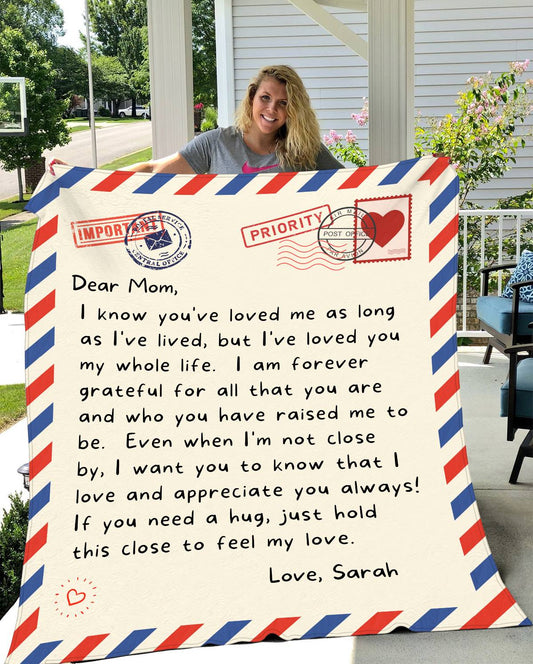 IMPORTANT
POSTAL SERVICE
CENTRAL OFFICE
PRIORITY
AIR MAIL
POST OFFICE
PAR AVION
Dear Mom,
I know you've loved me as long
as I've lived, but I've loved you
my whole life. I am forever
grateful for all that you are
and who you have raised me to
be. Even when I'm not close
by, I want you to know that I
love and appreciate you always!
If you need a hug, just hold
this close to feel my love.
Love, Sarah